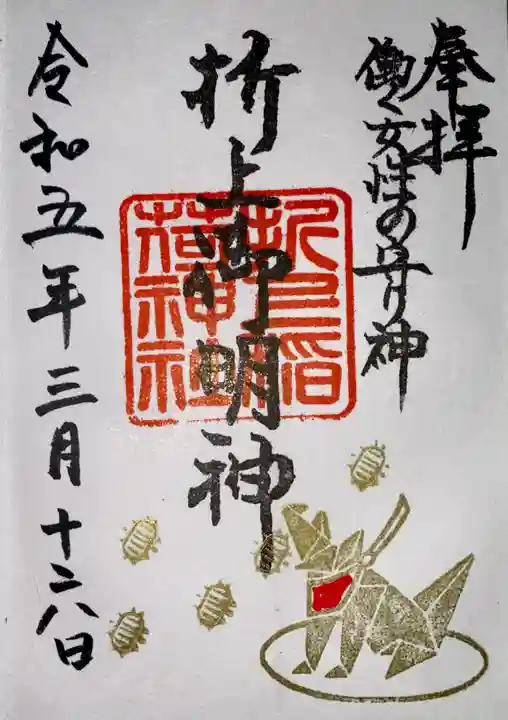 奉拝
働く女性の守り神
折上御明神
折上稲荷神社
令和五年三月十二八日